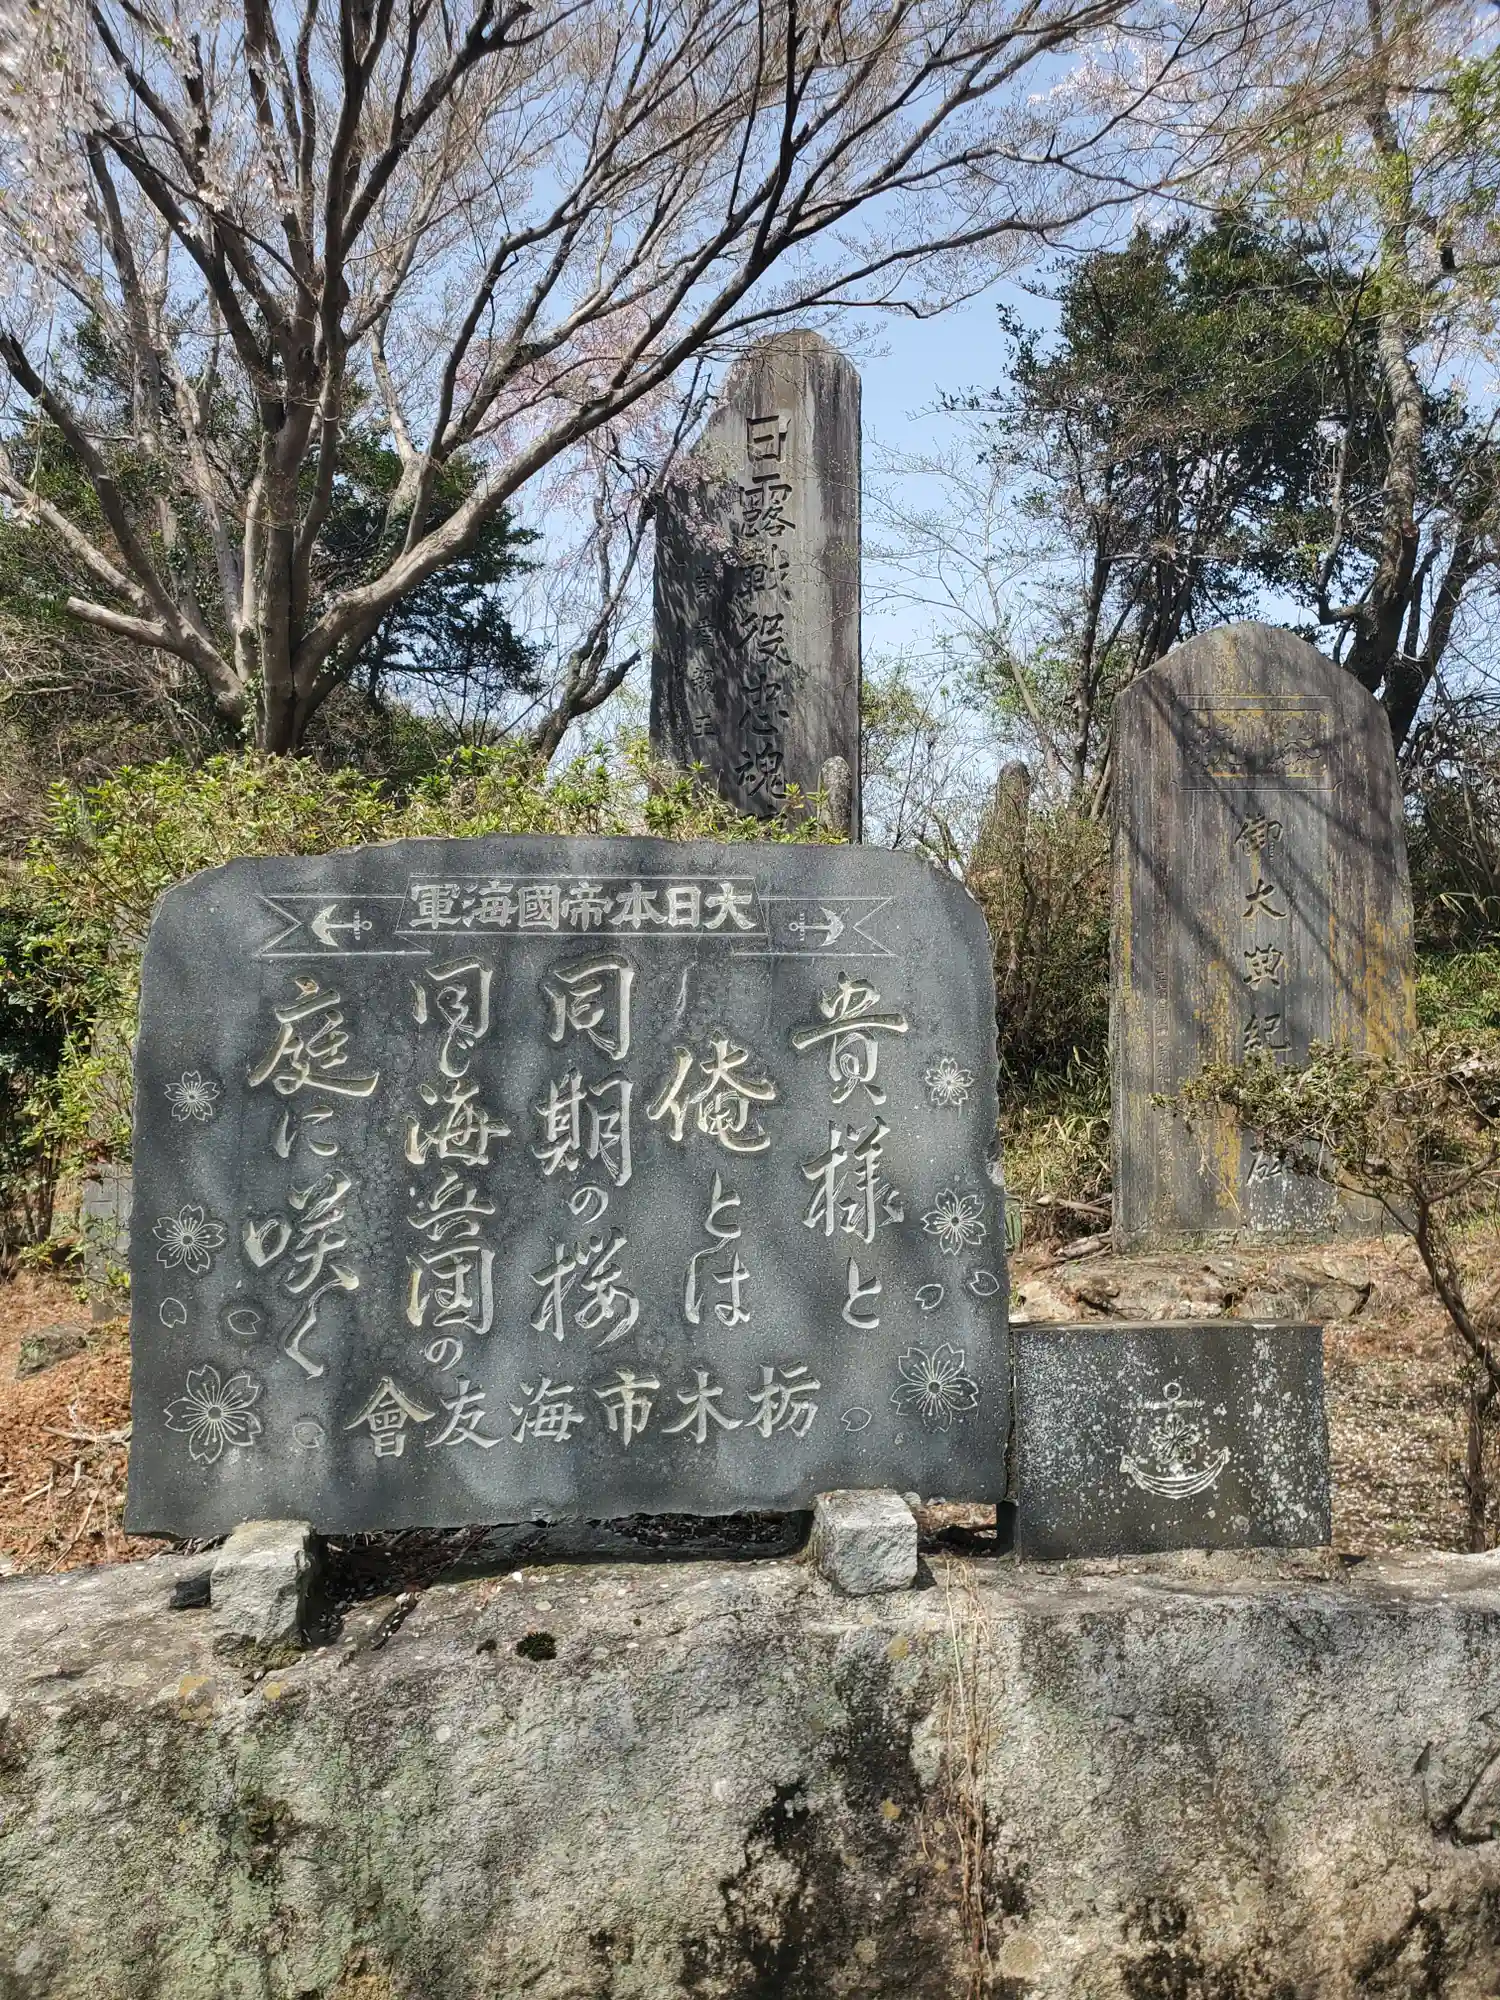 大日本帝國海軍
貴様と
俺とは
同期の桜
同じ海兵団の
庭に咲く
栃木市海友會
日露戦役忠魂
御大典紀